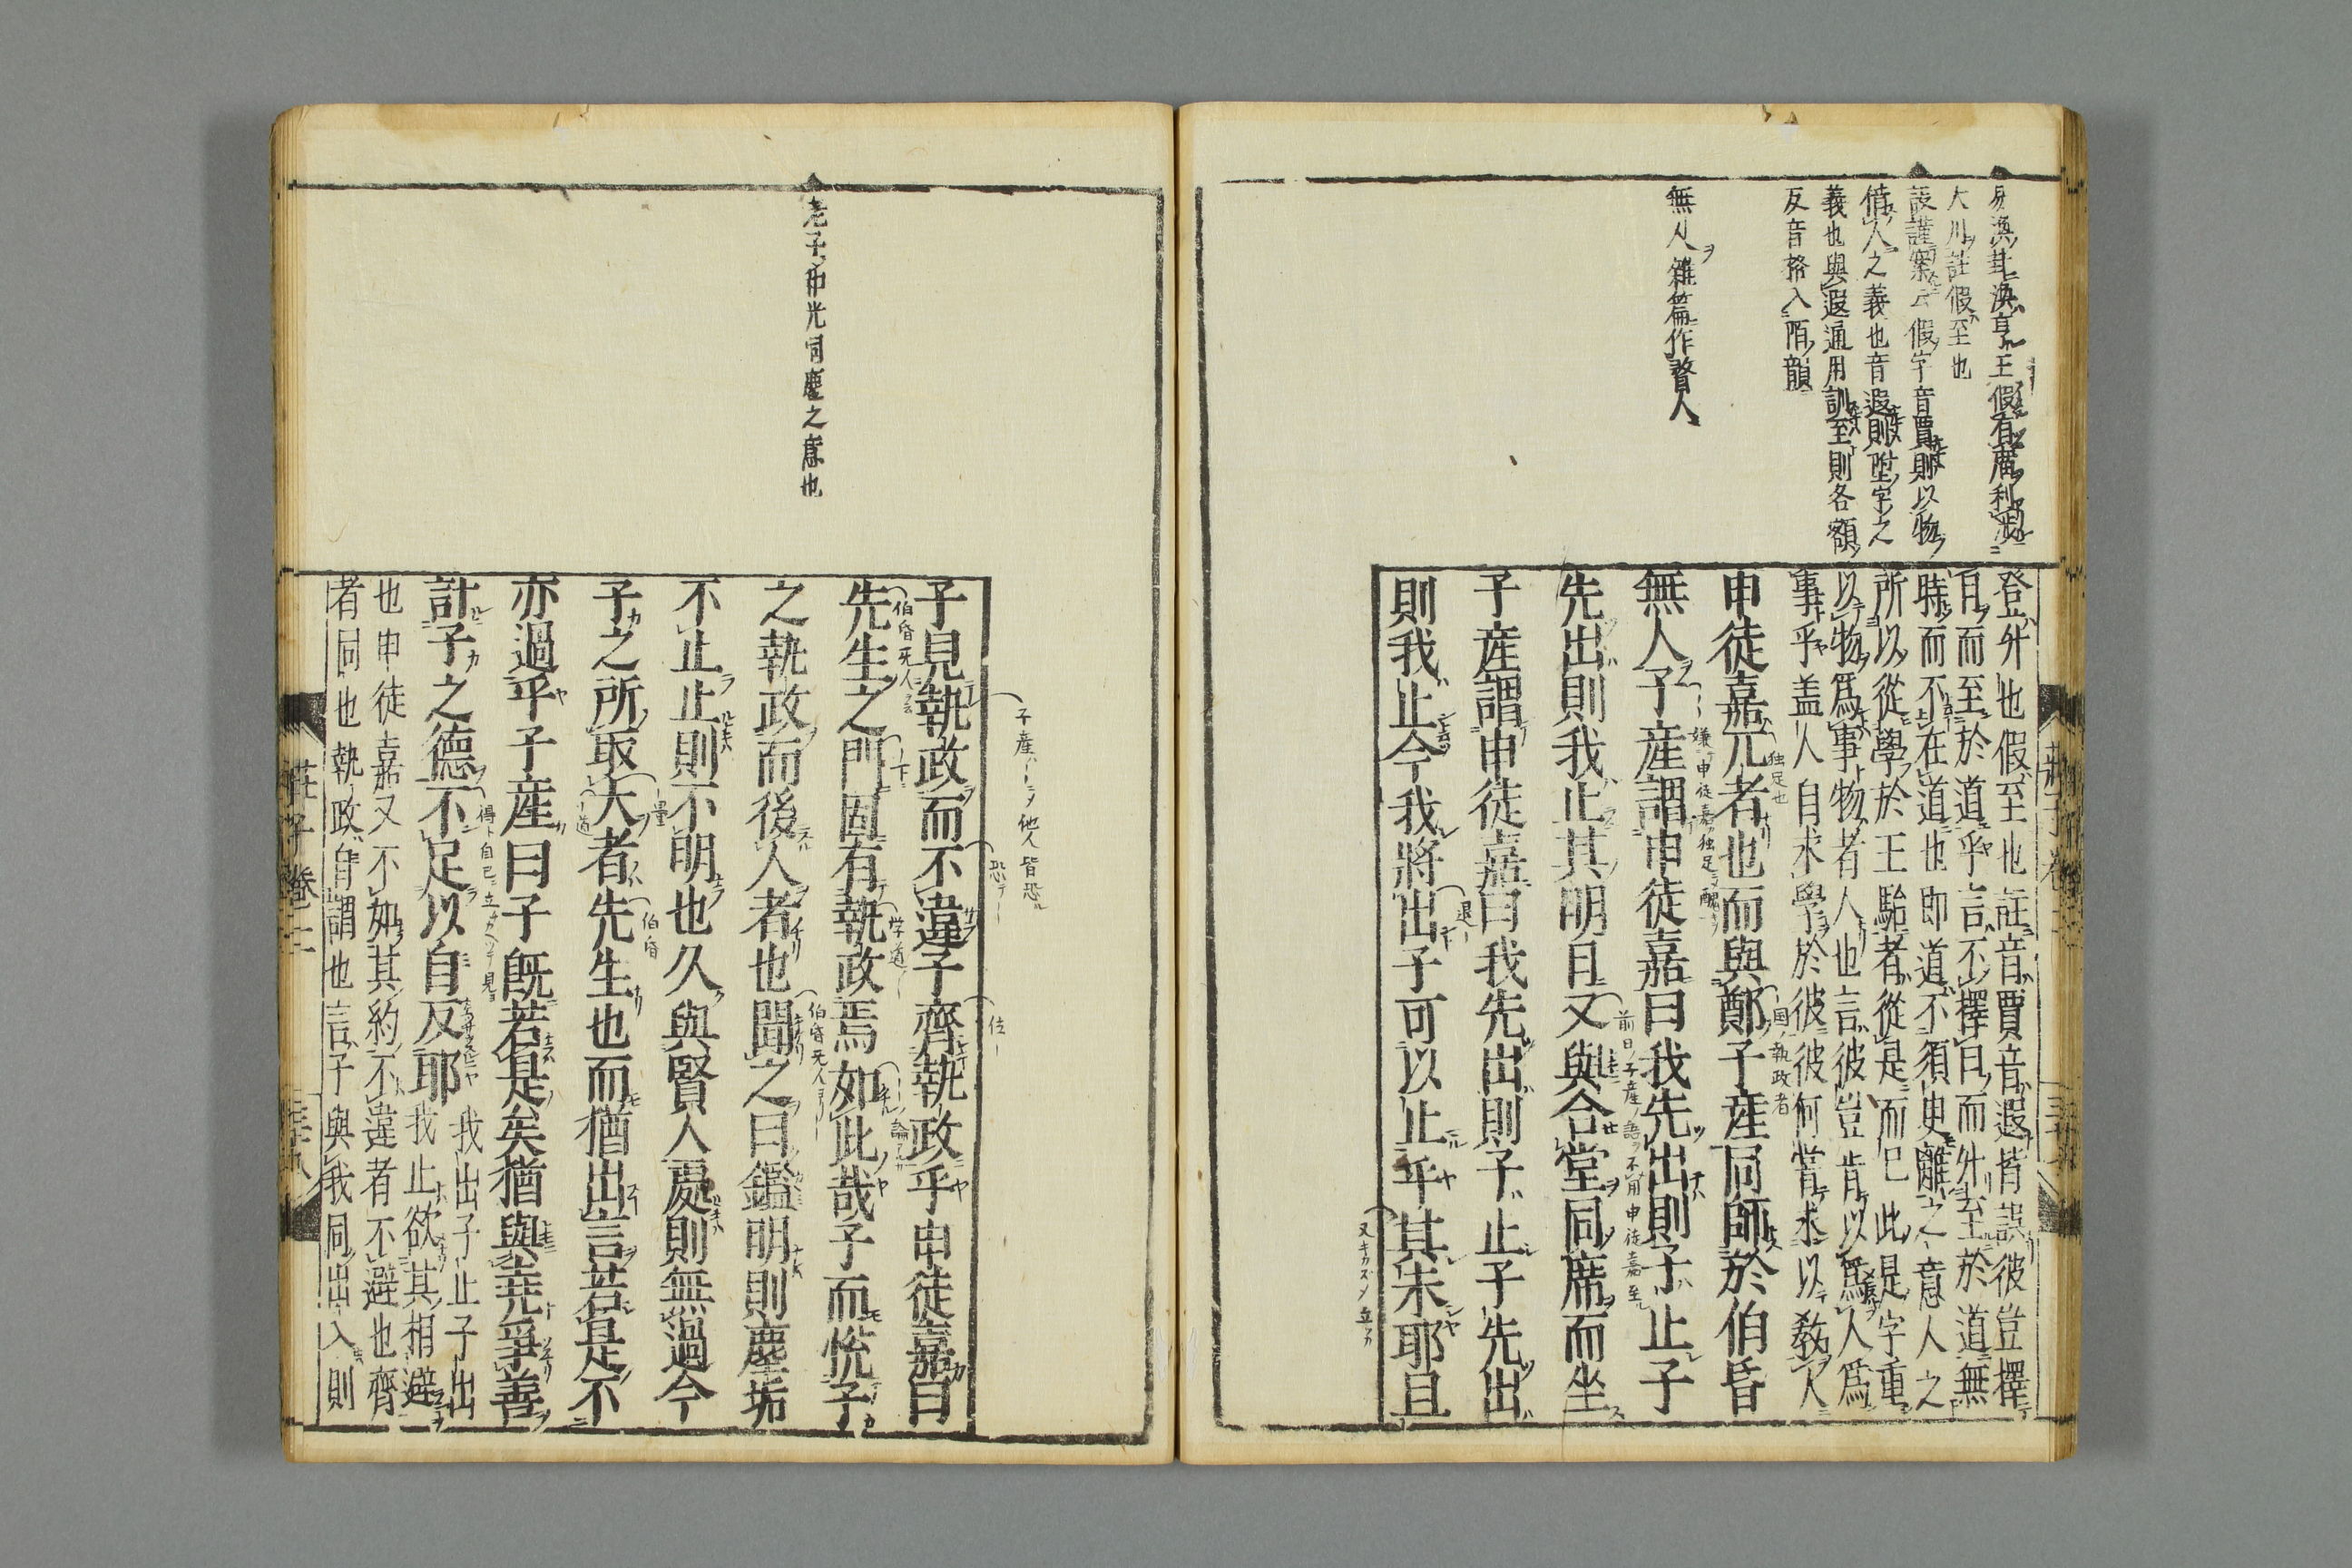 大川註假至也
設謹案云假字音賈則以物
借人之義也音遐則陞字之
義也與遐通用訓至則各額
反音格入陌韻
無人雜篇作瞀人
登升也假至也註音賈音遐皆誤彼豈擇
日而至於道乎言不擇日而升至於道無
時而不在道也即道不須史離之意人之
所以從學於王駘者從是而已此是字重
以物爲事物者人也言彼豈肯以爲人爲
事乎盖人自求學於彼彼何嘗求以敎人
申徒嘉兀者也而與鄭子産同師於伯昏
独足也
国ノ執政者
無人子産謂申徒嘉曰我先出則子止子
先出則我止其明日又與合堂同席而坐
子産謂申徒嘉曰我先出則子止子先出
則我止今我將出子可以止乎其未耶且
退
莊子卷二
老子和光同塵之意也
子見執政而不違子齊執政乎申徒嘉曰
先生之門固有執政焉如此哉子而恱子
伯昏无人
之執政而後人者也聞之曰鑑明則塵垢
不止止則不明也久與賢人處則無過今
子之所取大者先生也而猶出言若是不
伯昏
亦過乎子産曰子旣若是矣猶與堯爭善
計子之德不足以自反耶我出子止子出
我止欲其相避
也申徒嘉又不如其約不違者不避也齊
者同也執政自謂也言子與我同出入則
莊子卷二